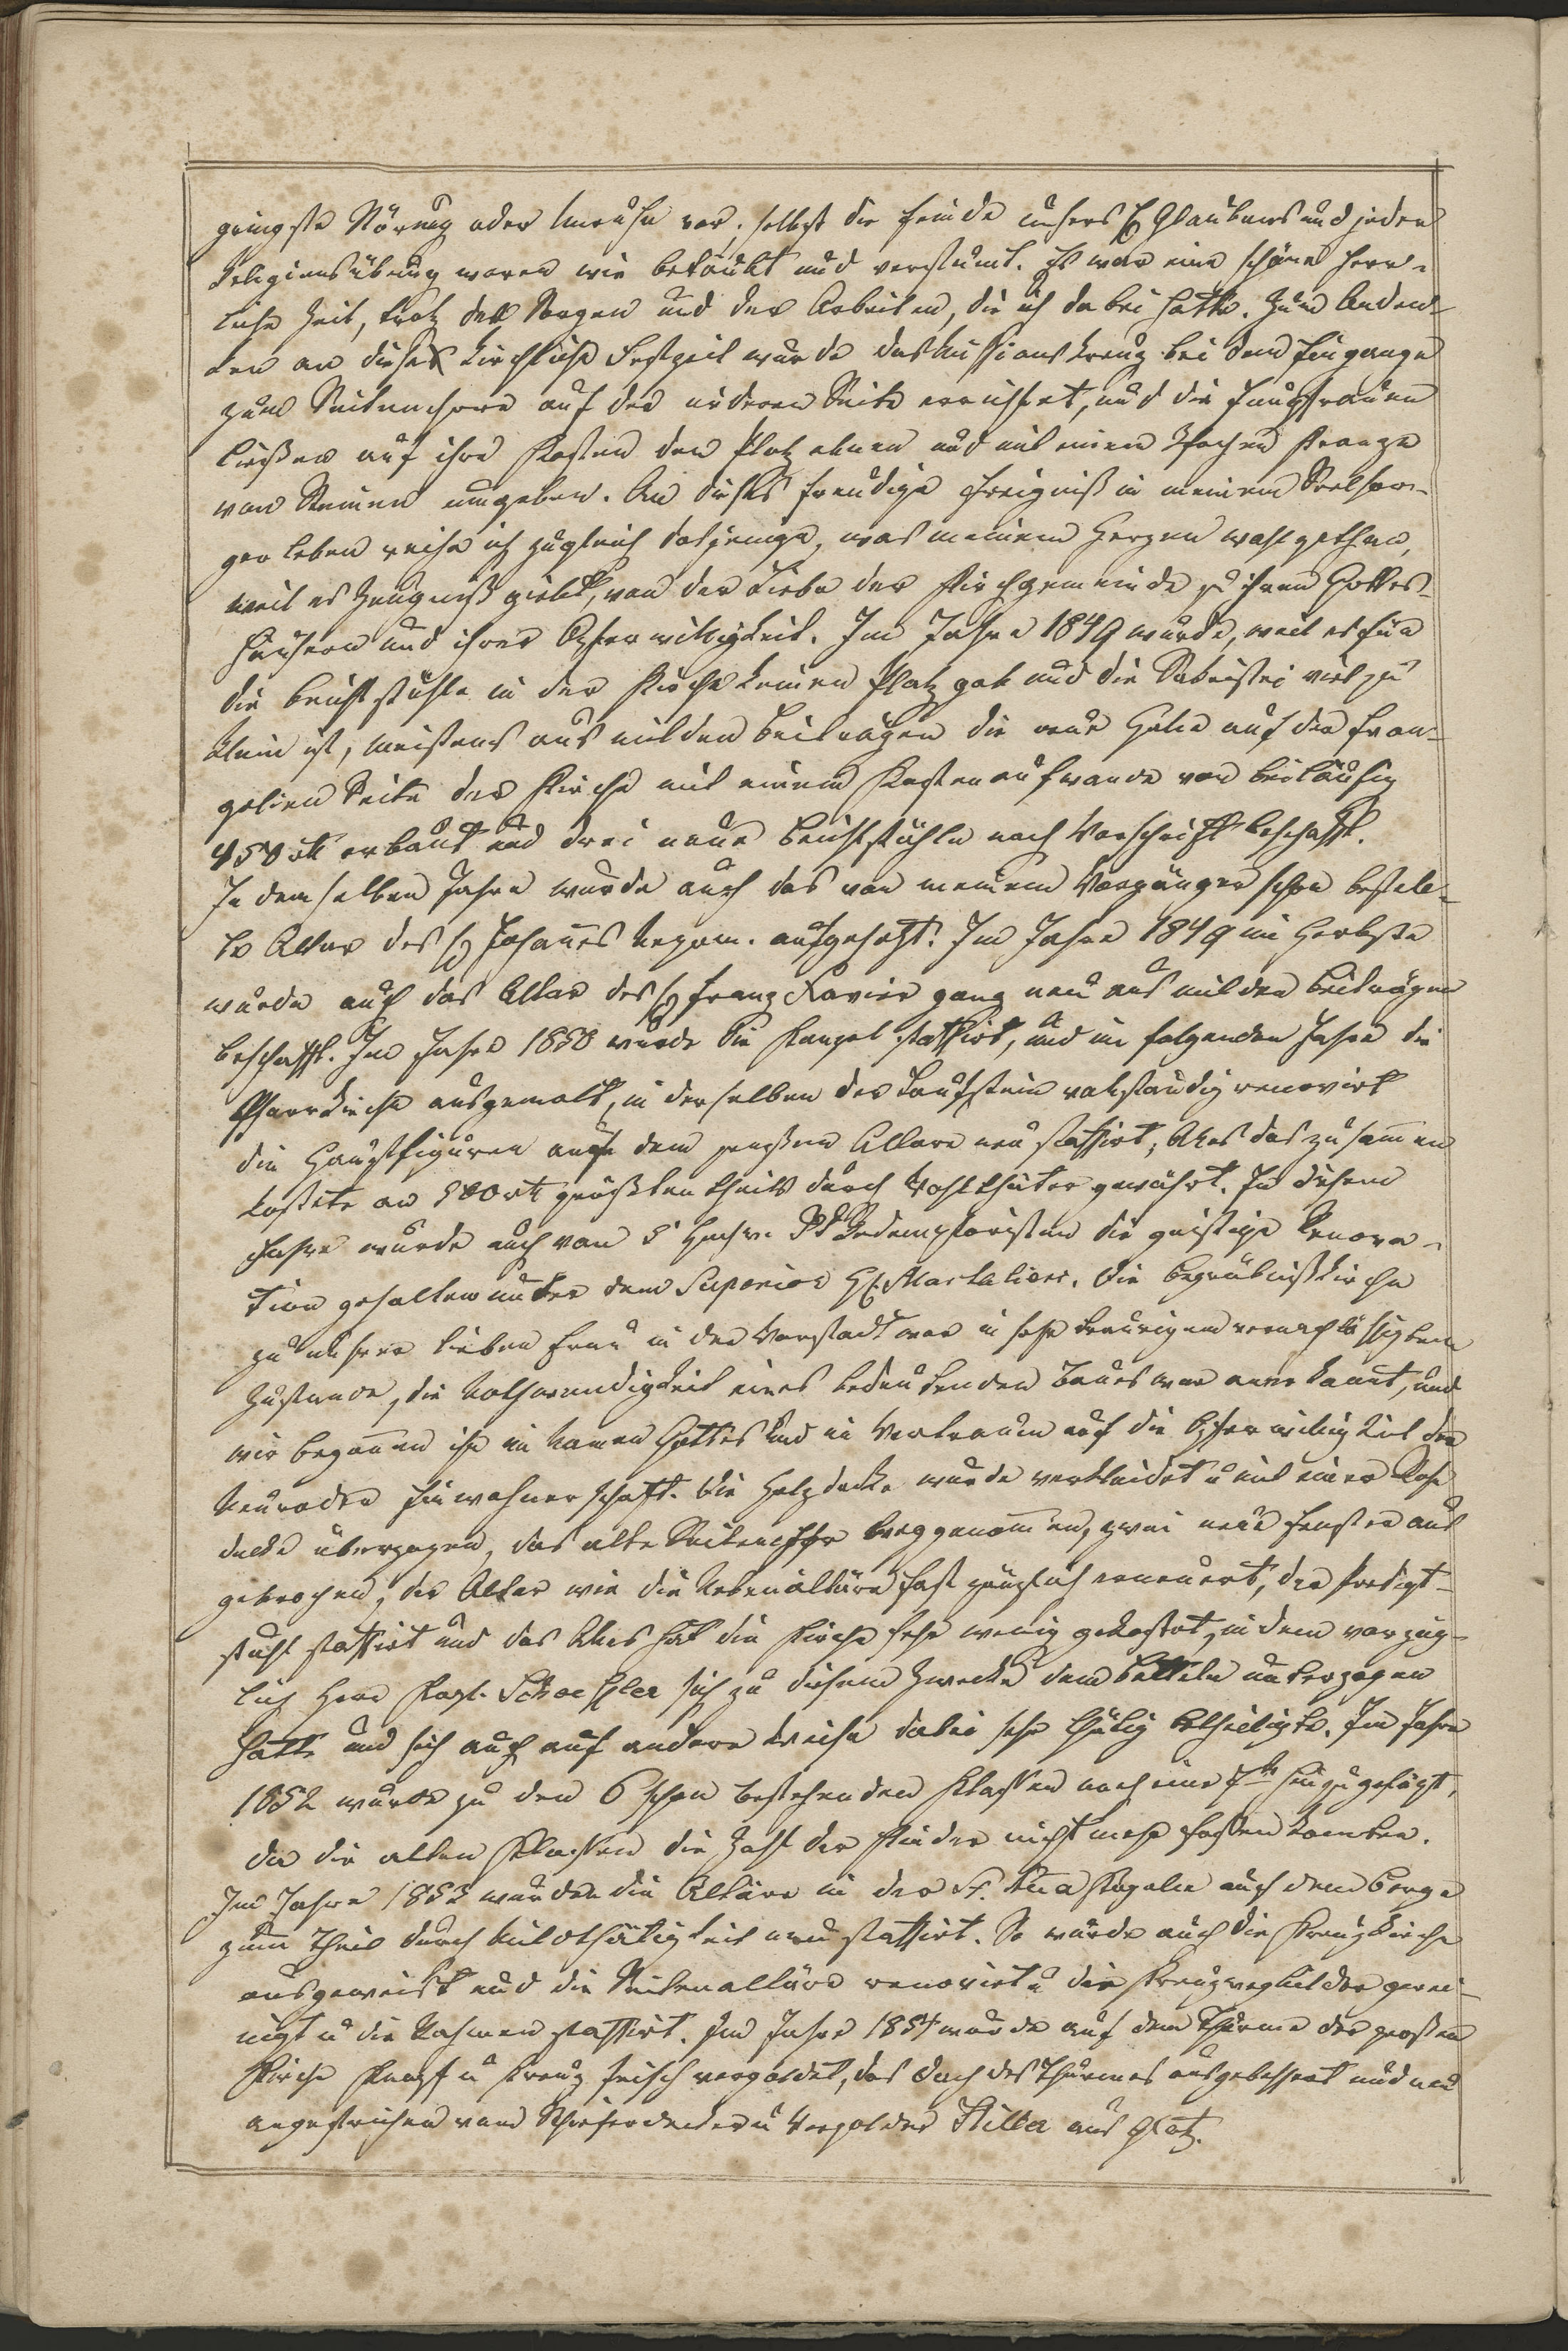 gringste Störung oder Unruhe vor; selbst die Feinde unsers h. Glaubens und jeder
Religionsübung waren wie betäubt und verstumt. Es war eine schöne herr-
liche Zeit, trotz der Sorgen und der Arbeiten, die ich dabei hatte. Zum Anden-
ken an diese kirchliche Festzeit wurde das Missionskreuz bei dem Eingange
zum Seitenchore auf der niederen Seite errichtet, und die Jungfrauen
ließen auf ihre Kosten den Platz ebnen und mit einem Kranze
von Steinen umgeben. An dieses freudige Ereigniß in meinem Seelsor-
ger Leben reihe ich zugleich dasjenige, was meinem Herzen wohlgethan,
weil es Zeugniß giebt, von der Liebe der Kirchgemeinde zu ihren Gottes-
häusern und ihrer Opferwilligkeit. Im Jahre 1849 wurde, weil es für
die Beichtstühle in der Kirche keinen Platz gab und die Sakristei viel zu
klein ist, meistens aus milden Beiträgen die neue Halle auf der Evan-
gelien Seite der Kirche mit einem Kostenaufwande von beiläufig
450 rtl erbaut und drei neue Beichtstühle nach Vorschrift beschafft.
In demselben Jahre wurde auch das von meinem Vorgänger schon bestell-
te Altar des h. Johannes Nepom. aufgesetzt. Im Jahre 1849 im Herbste
wurde auch das Altar des h. Franz Xavier ganz neu aus milden Beiträgen
beschafft. Im Jahre 1850 wurde die Kanzel staffirt, und im folgenden Jahre die
Pfarrkirche ausgemalt, in derselben der Taufstein vollständig renovirt
die Hauptfiguren auf dem großen Altare neu staffirt, Alles das zusammen
kostete an 500 rtl größten theils durch Wohlthäter gewährt. In diesem
Jahre wurde auch von 5 Hochw. PP Redemptoristen die geistige Renova-
tion gehalten unter dem Superior H. Mastalieri. Die Begräbnißkirche
zu unserer lieben Frau in der Vorstadt war in sehr traurigem vernachlässigtem
Zustande, die Nothwendigkeit eines bedeutenden Baues war anerkannt, und
wir begannen ihn im Namen Gottes und im Vertrauen auf die Opferwilligkeit der
Neuroder Einwohnerschaft. Die Holzdecke wurde verkleidet u mit einer Rohr
decke überzogen, das alte Seitenchor weggenommen, zwei neue Fenster aus
gebrochen, der Altar wie die Nebenaltäre fast gänzlich erneuert, der Predigt-
stuhl staffirt und das Alles hat die Kirche sehr wenig gekostet, indem vorzüg-
lich Herr Kapl. sich zu diesem Zwecke dem Betteln unterzogen
hatte und sich auch auf andere Weise dabei sehr thätig betheiligte. Im Jahre
1852 wurde zu den 6 schon bestehenden Klassen noch eine 7te hinzugefügt,
da die alten Klassen die Zahl der Kinder nicht mehr fassen konnten.
Im Jahre 1853 wurden die Altäre in der St. Anna Kapelle auf dem Berge
zum Theil durch Mildthätigkeit neu staffirt. So wurde auch die Kreuzkirche
ausgeweißt und die Seitenaltäre renovirt u die Kreuzwegbilder gerei-
nigt u die Rahmen staffirt. Im Jahre 1854 wurde auf dem Thurme der großen
Kirche Knopf u Kreuz frisch vergoldet, das Dach des Thurmes ausgebessert und neu
angestrichen vom Schieferdecker u Vergolder Stiller aus Glatz.